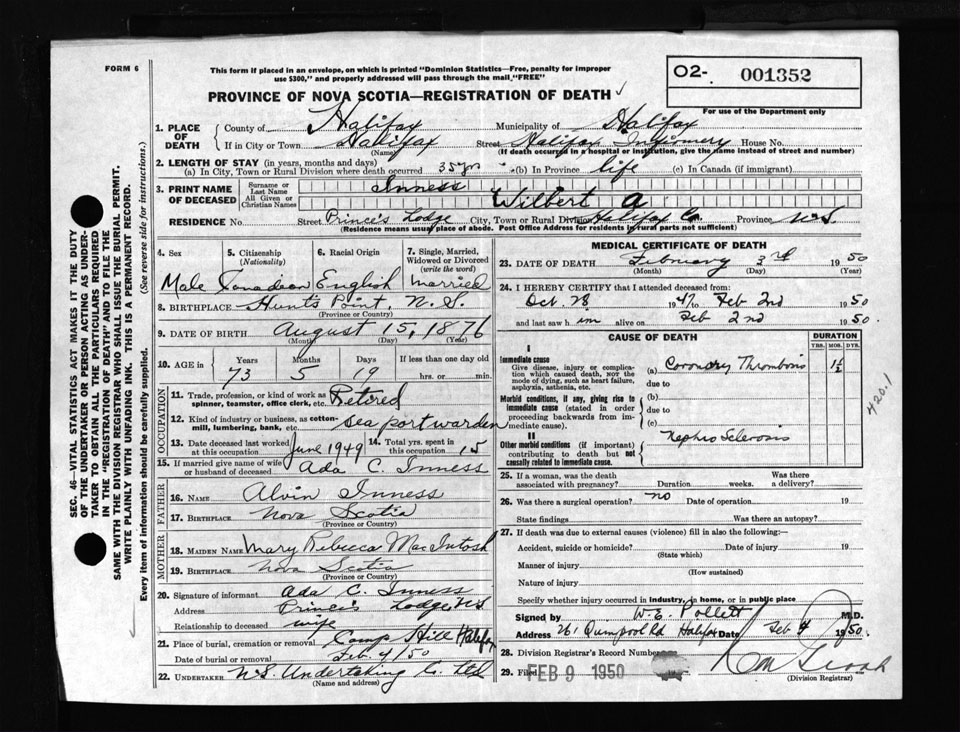 FORM 6
This form if placed in an envelope, on which is printed "Dominion Statistics—Free, penalty for improper
use $300," and properly addressed will pass through the mail, "FREE"
O2- 001352
For use of the Department only
PROVINCE OF NOVA SCOTIA—REGISTRATION OF DEATH
1. PLACE OF DEATH County of Halifax Municipality of Halifax
If in City or Town Halifax Street Halifax Infirmery House No.
(Name) (If death occurred in a hospital or institution, give the name instead of street and number)
2. LENGTH OF STAY (in years, months and days)
(a) In City, Town or Rural Division where death occurred 35 yrs (b) In Province life (c) In Canada (if immigrant)
3. PRINT NAME OF DECEASED Surname or Last Name Inness
All Given or Christian Names Wilbert A
RESIDENCE No. Street Prince's Lodge City, Town or Rural Division Halifax Co. Province N.S.
(Residence means usual place of abode. Post Office Address for residents in rural parts not sufficient)
4. Sex 5. Citizenship (Nationality) 6. Racial Origin 7. Single, Married, Widowed or Divorced (write the word)
Male Canadian English Married
8. BIRTHPLACE Hunts Point, N.S.
(Province or Country)
9. DATE OF BIRTH August 15, 1876
(Month) (Day) (Year)
10. AGE in Years Months Days If less than one day old
73 5 19 hrs. or min.
OCCUPATION
11. Trade, profession, or kind of work as spinner, teamster, office clerk, etc. Retired
12. Kind of industry or business, as cotton-mill, lumbering, bank, etc. Sea port warden
13. Date deceased last worked at this occupation June 1949 14. Total yrs. spent in this occupation 15
15. If married give name of wife or husband of deceased Ada C. Inness
FATHER
16. NAME Alvin Inness
17. BIRTHPLACE Nova Scotia
(Province or Country)
MOTHER
18. MAIDEN NAME Mary Rebecca MacIntosh
19. BIRTHPLACE Nova Scotia
(Province or Country)
20. Signature of informant Ada C. Inness
Address Prince's Lodge, N.S
Relationship to deceased wife
21. Place of burial, cremation or removal Camp Hill Halifax
Date of burial or removal Feb. 4/50
22. UNDERTAKER N.S. Undertaking Co. Ltd
(Name and address)
MEDICAL CERTIFICATE OF DEATH
23. DATE OF DEATH February 3rd 1950
(Month) (Day) (Year)
24. I HEREBY CERTIFY that I attended deceased from:
Oct. 28 1947 to Feb 2nd 1950
and last saw him alive on Feb 2nd 1950.
CAUSE OF DEATH DURATION
YRS. MOS. DYS.
I
Immediate cause
Give disease, injury or complication which caused death, not the mode of dying, such as heart failure, asphyxia, asthenia, etc.
(a) Coronary Thrombosis 1½
due to
Morbid conditions, if any, giving rise to immediate cause (stated in order proceeding backwards from immediate cause).
(b)
due to
(c)
II
Other morbid conditions (if important) contributing to death but not causally related to immediate cause.
Nephro Sclerosis
420.1
25. If a woman, was the death associated with pregnancy? Duration weeks. Was there a delivery?
26. Was there a surgical operation? no Date of operation 19
State findings Was there an autopsy?
27. If death was due to external causes (violence) fill in also the following:—
Accident, suicide or homicide? Date of injury 19
(State which)
Manner of injury
(How sustained)
Nature of injury
Specify whether injury occurred in industry, in home, or in public place
Signed by W. E. Pollett M.D.
Address 261 Quinpool Rd Halifax Date Feb 4 1950.
28. Division Registrar's Record Number
29. Filed FEB 9 1950
(Division Registrar)
SEC. 46—VITAL STATISTICS ACT MAKES IT THE DUTY
OF THE UNDERTAKER OR PERSON ACTING AS UNDER-
TAKER TO OBTAIN ALL THE PARTICULARS REQUIRED
IN THE "REGISTRATION OF DEATH" AND TO FILE THE
SAME WITH THE DIVISION REGISTRAR WHO SHALL ISSUE THE BURIAL PERMIT.
WRITE PLAINLY WITH UNFADING INK. THIS IS A PERMANENT RECORD.
Every item of information should be carefully supplied. (See reverse side for instructions.)